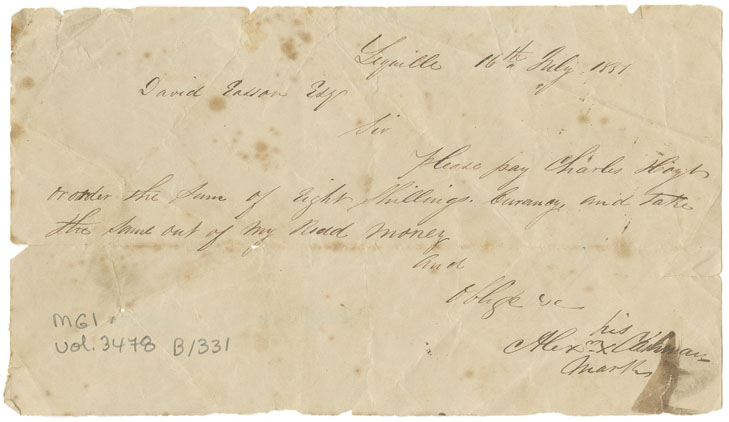 Lequille 16th July 1851
David Easson Esqr
Sir
Please pay Charles Hoyt
or order the Sum of Eight Shillings. Curancy and take
the Same out of my Road Money
And
Oblige &c
his
Alexr x
Mark
MG1
vol. 3478 B/331